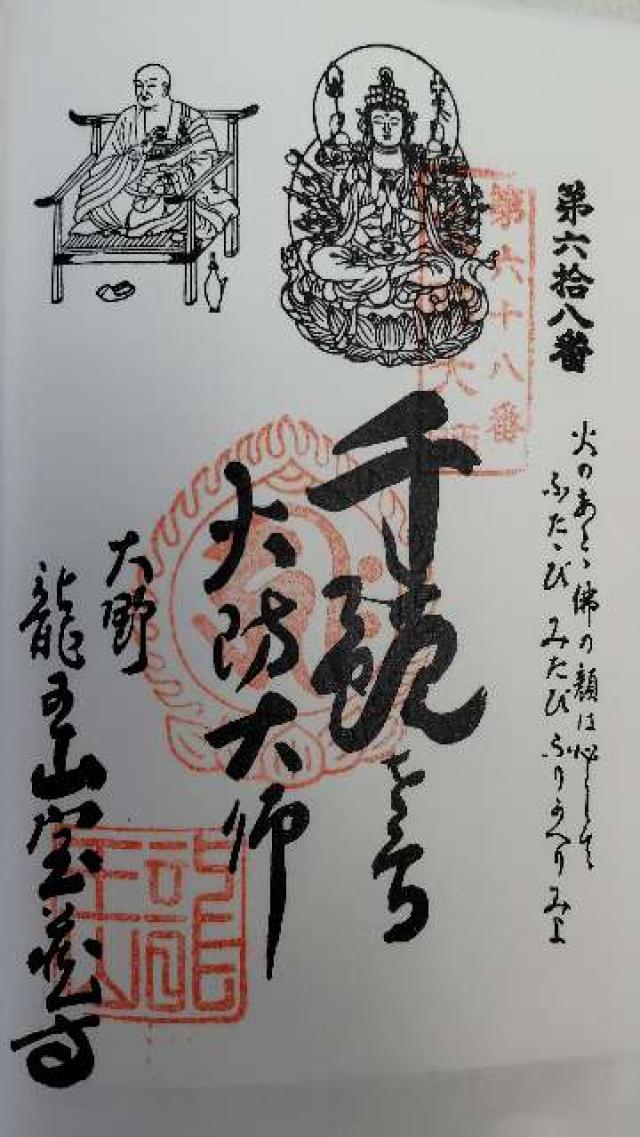 第六拾八番
火のあとゝ佛の顔は心して
ふたゝびみたびふりかへりみよ
第六十八番
大師
千観さ
火防大師
大野
龍王山宝蔵寺